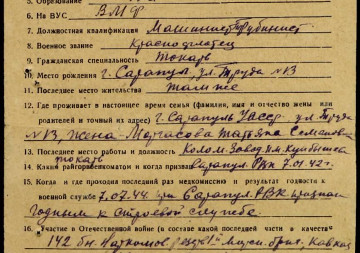 5. Образование
6. На ВУС ВМФ
7. Должностная квалификация Машинист Турбинист
8. Военное звание Краснофлотец
9. Гражданская специальность Токарь
10. Место рождения г. Сарапул, ул. Труда №13
11. Последнее место жительства там же
12. Где проживает в настоящее время семья (фамилия, имя и отчество жены или
родителей и точный их адрес) г. Сарапул УАССР ул. Труда
№13, жена - Татьяна Семеновна
13. Последнее место работы и должность Колом. Завод им. Куйбышева
токарь
14. Каким райгорвоенкоматом и когда призван Сарапул. РВК 7.01.42 г.
15. Когда и где проходил последний раз медкомиссию и результат годности к
военной службе 7.07.44 Сарапул. РВК признан
годным к строевой службе.
16. Участие в Отечественной войне (в составе какой последней части в качестве
142 бн. Морск. бриг., Кавказ